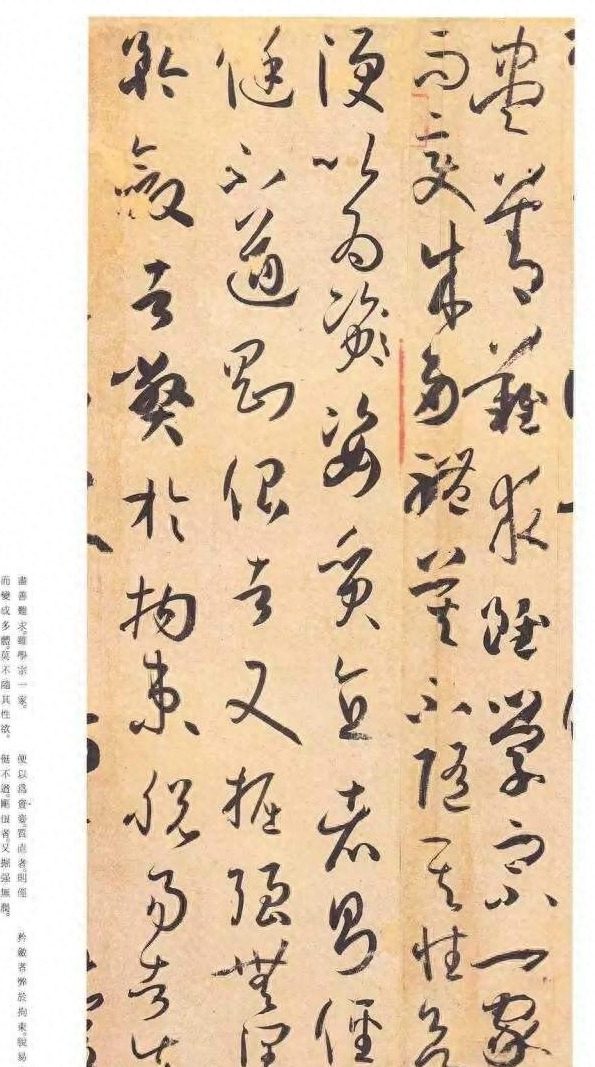 盡善難求雖學宗一家
而變成多體莫不隨其性欲
便以為資姿質直者則俓
侹不遒剛佷者又掘強無潤
矜斂者弊於拘束脫易者失
盡善難求。雖學宗一家。 便以爲資姿。質直者。則俓 矜斂者弊於拘束。脫易
而變成多體。莫不隨其性欲。 侹不遒。剛佷者。又掘强無潤。